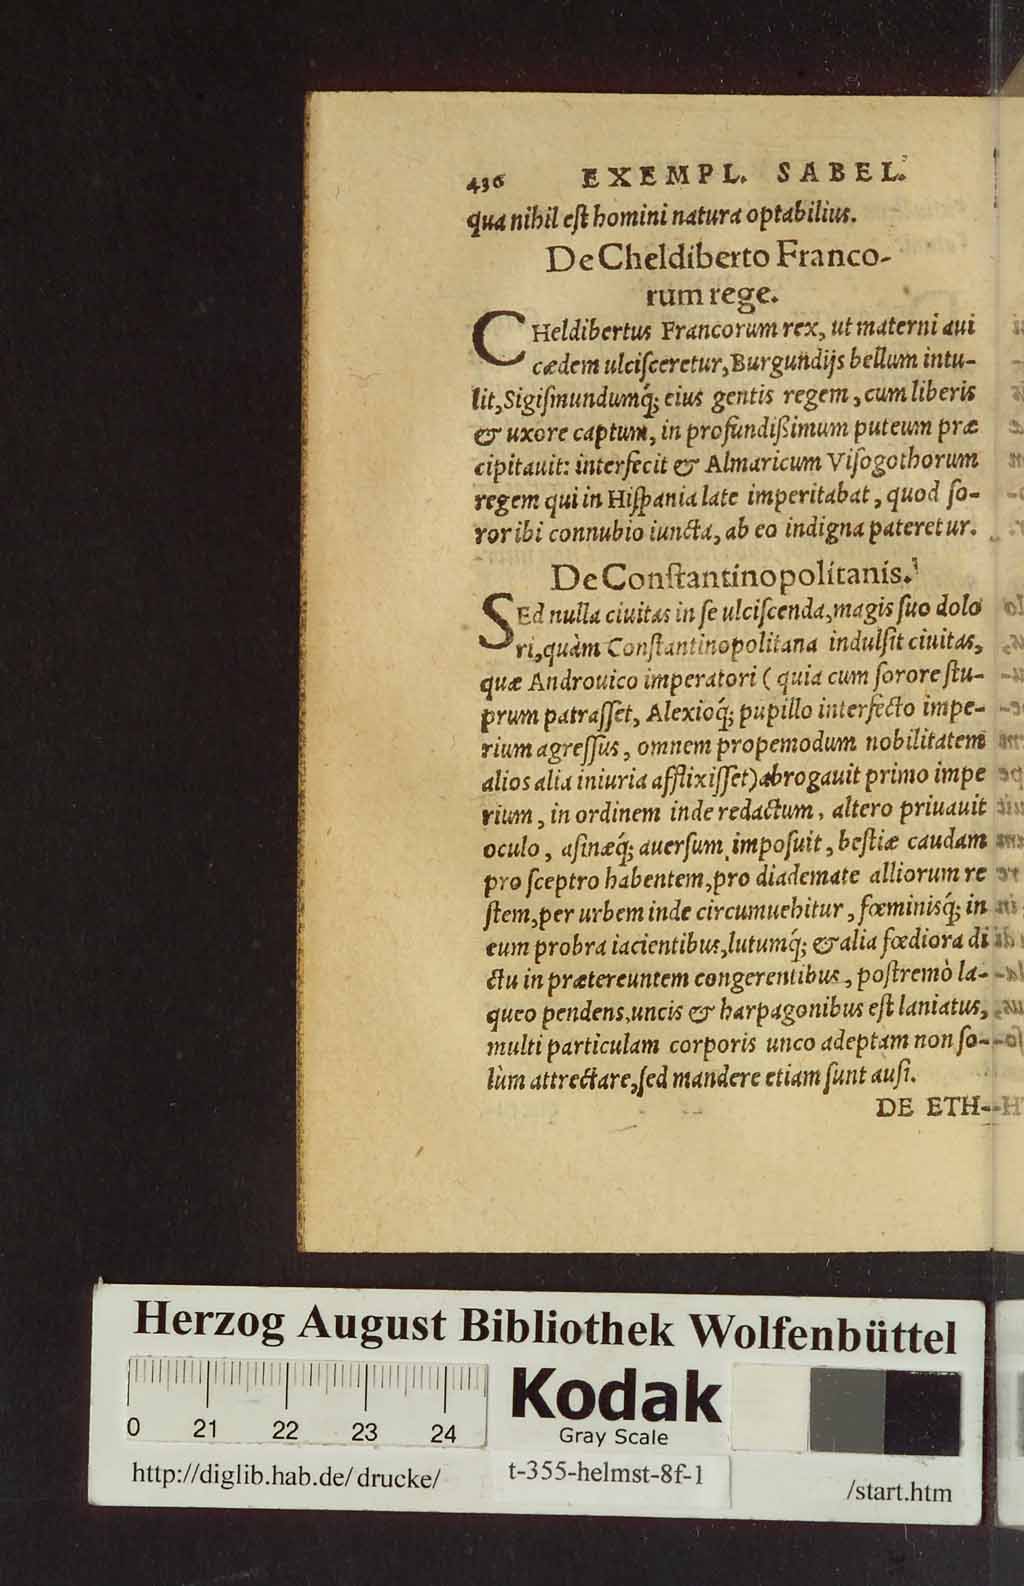 436 EXEMPL. SABEL.
qua nihil eſt homini natura optabilius.
De Cheldiberto Franco-
rum rege.
CHeldibertus Francorum rex, ut materni aui
cædem ulciſceretur, Burgundijs bellum intu-
lit, Sigiſmundumq́; eius gentis regem, cum liberis
& uxore captum, in profundißimum puteum præ
cipitauit: interfecit & Almaricum Viſogothorum
regem qui in Hiſpania late imperitabat, quod ſo-
ror ibi connubio iuncta, ab eo indigna pateretur.
De Conſtantinopolitanis.
SEd nulla ciuitas in ſe ulciſcenda, magis ſuo dolo
ri, quàm Conſtantinopolitana indulſit ciuitas,
quæ Androuico imperatori ( quia cum ſorore ſtu-
prum patraſſet, Alexioq́; pupillo interfecto impe-
rium agreſſus, omnem propemodum nobilitatem
alios alia iniuria afflixiſſet) abrogauit primo impe
rium, in ordinem inde redactum, altero priuauit
oculo, aſinæq́; auerſum impoſuit, beſtiæ caudam
pro ſceptro habentem, pro diademate alliorum re
ſtem, per urbem inde circumuehitur, fœminisq́; in
eum probra iacientibus, lutumq́; & alia fœdiora di
ctu in prætereuntem congerentibus, poſtremò la-
queo pendens, uncis & harpagonibus eſt laniatus,
multi particulam corporis unco adeptam non ſo-
lùm attrectare, ſed mandere etiam ſunt auſi.
DE ETH-
Herzog August Bibliothek Wolfenbüttel
0 21 22 23 24
Kodak
Gray Scale
http://diglib.hab.de/drucke/ t-355-helmst-8f-1 /start.htm